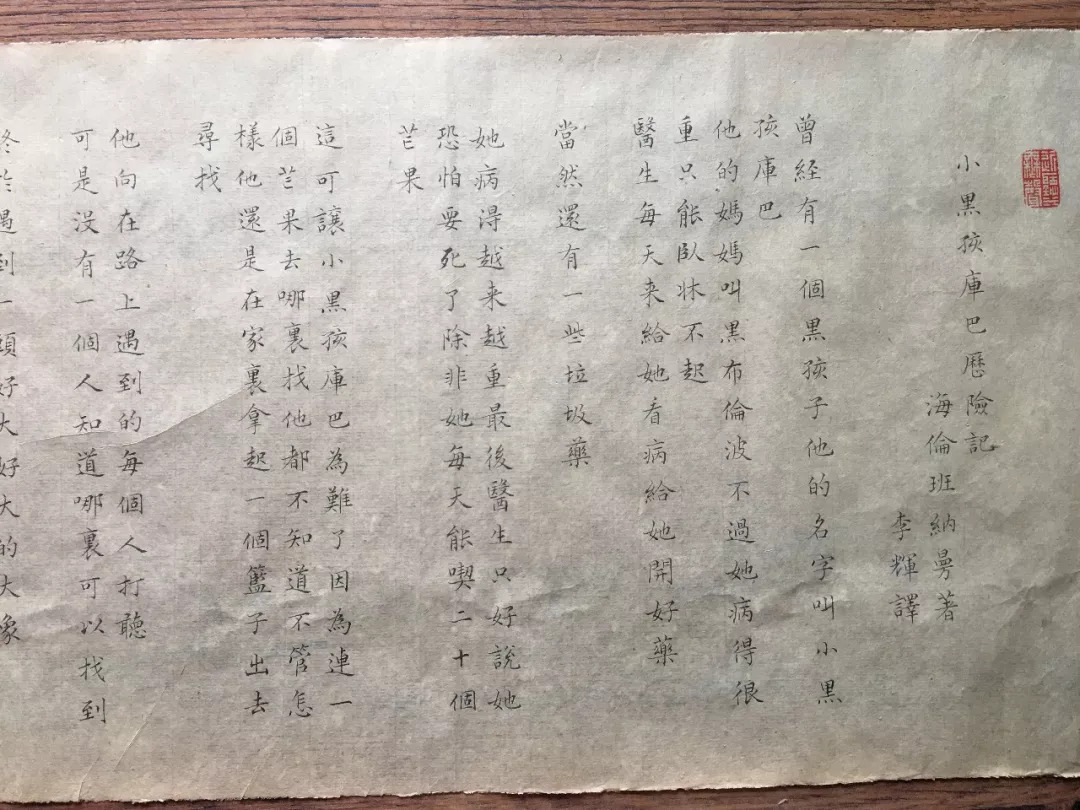 小黑孩庫巴歷險記
海倫班納曼著
李輝譯
曾経有一個黑孩子他的名字叫小黑
孩庫巴
他的媽媽叫黑布倫波不過她病得很
重只能臥牀不起
醫生每天来給她看病給她開好藥
當然還有一些垃圾藥
她病得越来越重最後醫生只好說她
恐怕要死了除非她每天能喫二十個
芒果
這可讓小黑孩庫巴為難了因為連一
個芒果去哪裏找他都不知道不管怎
樣他還是在家裏拿起一個籃子出去
尋找
他向在路上遇到的每個人打聽
可是没有一個人知道哪裏可以找到
終於遇到一頭好大好大的大象